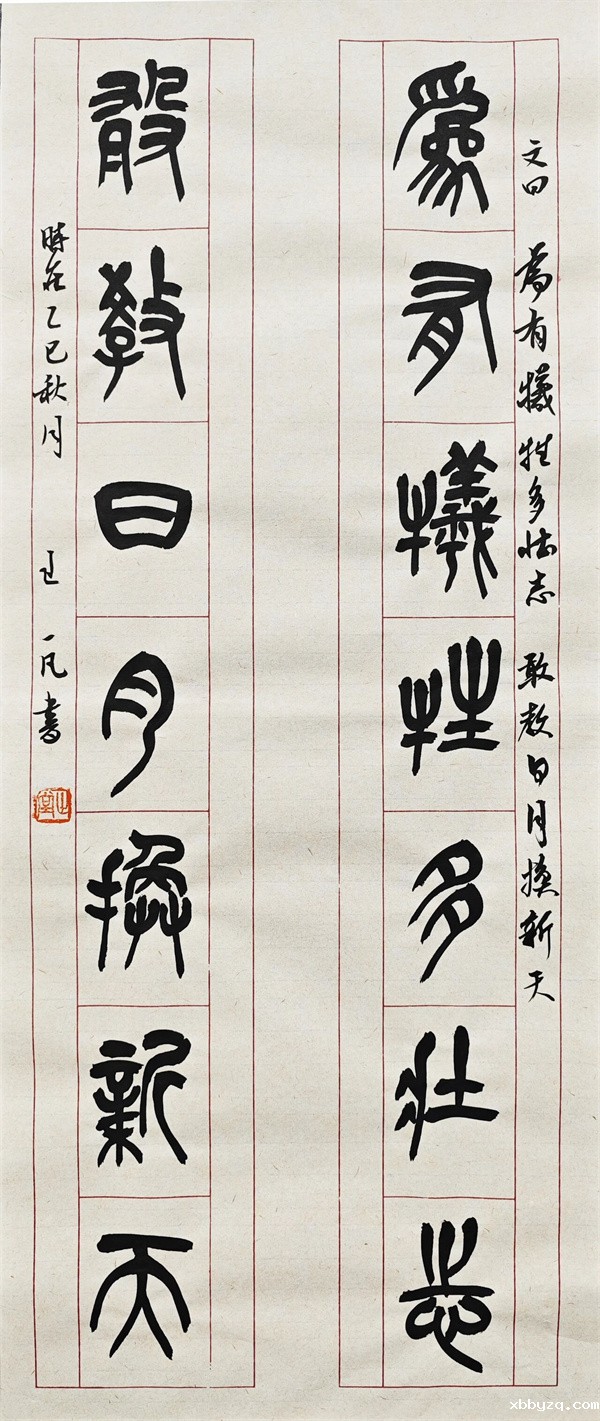 文曰 為有犧牲多壯志 敢教日月換新天
為有犧牲多壯志
敢教日月換新天
時在乙巳秋月 王一凡書
xbbyzq.com